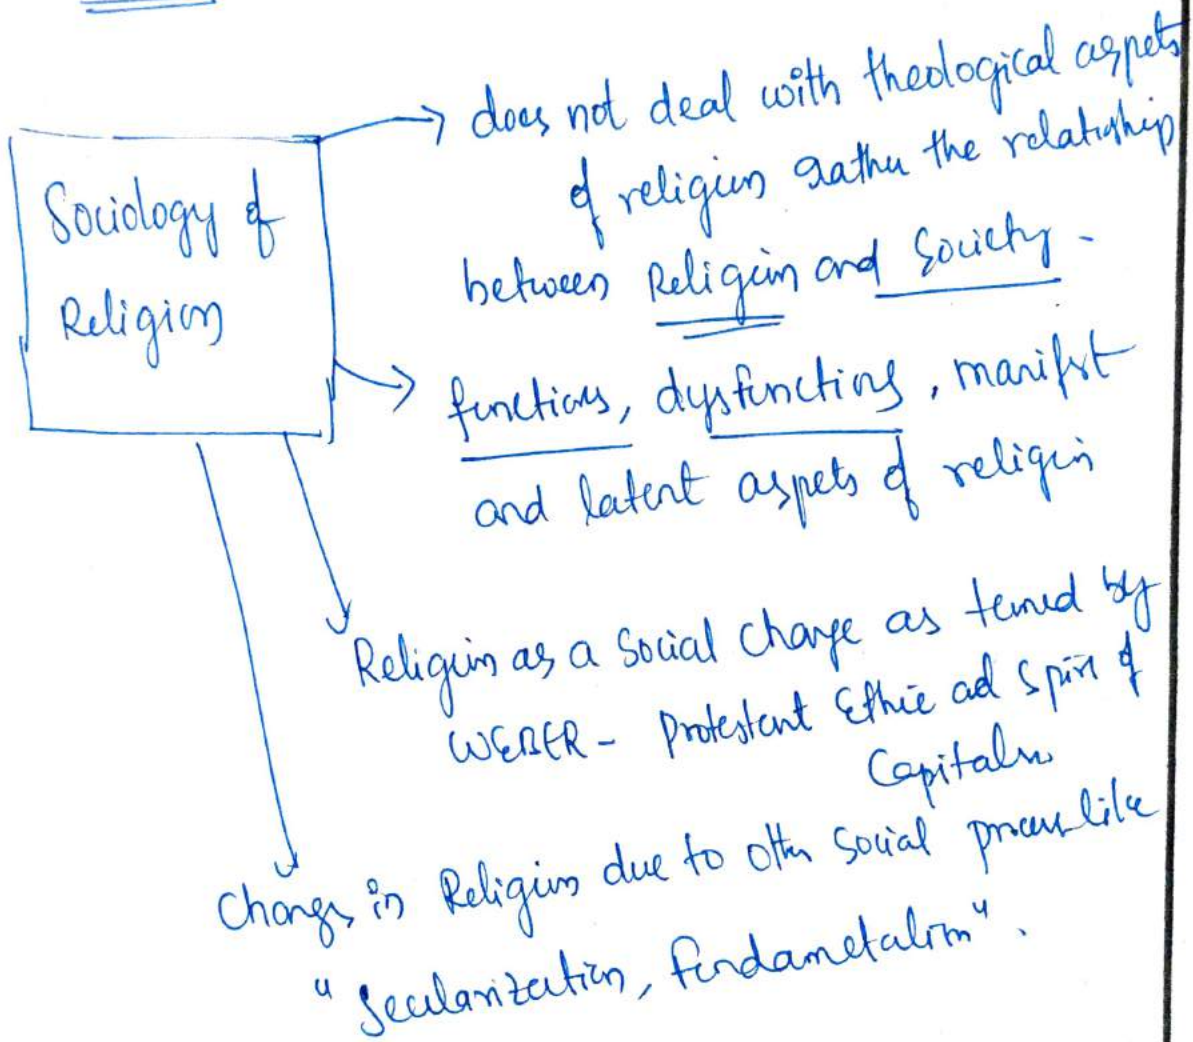 Sociology of
Religion
does not deal with theological aspets
of religion rather the relationship
between Religion and Society.
functions, dysfunctions, manifest
and latent aspets of religion
Religion as a Social Change as termed by
WEBER - Protestant Ethic ad Spirit of
Capitalsm
Changes in Religion due to other Social process like
"Secularization, fundametalism".